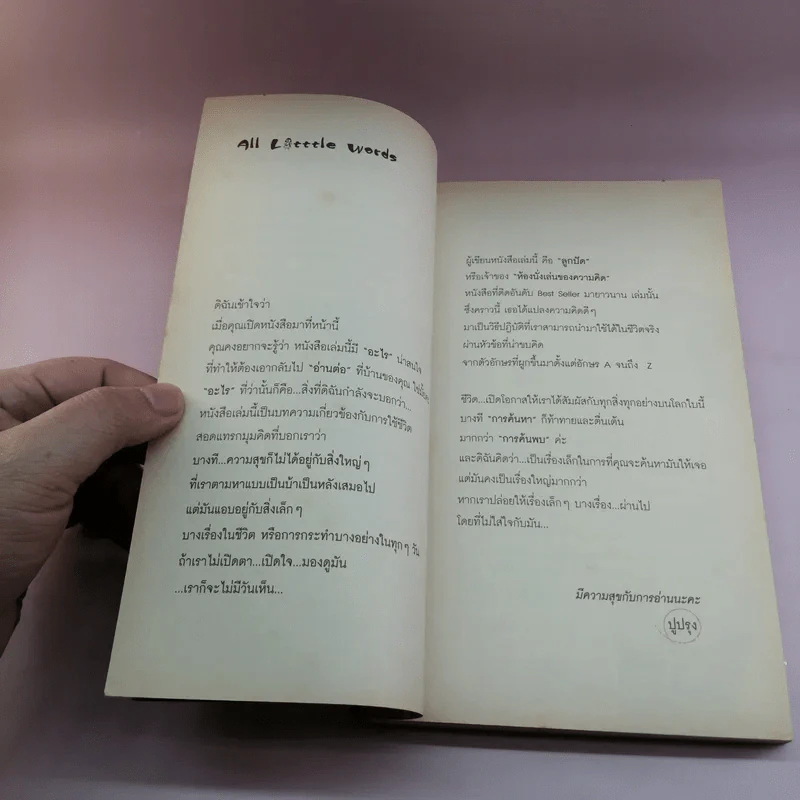 All Little Words
ดิฉันเข้าใจว่า
เมื่อคุณเปิดหนังสือมาที่หน้านี้
คุณคงอยากจะรู้ว่า หนังสือเล่มนี้มี "อะไร" น่าสนใจ
ที่ทำให้ต้องเอากลับไป "อ่านต่อ" ที่บ้านของคุณ
"อะไร" ที่ว่านั้นก็คือ...สิ่งที่ดิฉันกำลังจะบอกว่า...
หนังสือเล่มนี้เป็นบทความเกี่ยวข้องกับการใช้ชีวิต
สอดแทรกมุมคิดที่บอกเราว่า
บางที...ความสุขก็ไม่ได้อยู่กับสิ่งใหญ่ๆ
ที่เราตามหาแบบเป็นบ้าเป็นหลังเสมอไป
แต่มันแอบอยู่กับสิ่งเล็กๆ
บางเรื่องในชีวิต หรือการกระทำบางอย่างในทุกๆ วัน
ถ้าเราไม่เปิดตา...เปิดใจ...มองดูมัน
...เราก็จะไม่มีวันเห็น...
ผู้เขียนหนังสือเล่มนี้ คือ "ลูกปัด"
หรือเจ้าของ "ห้องนั่งเล่นของความคิด"
หนังสือที่ติดอันดับ Best Seller มายาวนาน เล่มนั้น
ซึ่งคราวนี้ เธอได้แปลงความคิดดีๆ
มาเป็นวิธีปฏิบัติที่เราสามารถนำมาใช้ได้ในชีวิตจริง
ผ่านหัวข้อที่น่าขบคิด
จากตัวอักษรที่ผูกขึ้นมาตั้งแต่อักษร A จนถึง Z
ชีวิต...เปิดโอกาสให้เราได้สัมผัสกับทุกสิ่งทุกอย่างบนโลกใบนี้
บางที "การค้นหา" ก็ท้าทายและตื่นเต้น
มากกว่า "การค้นพบ" ค่ะ
และดิฉันคิดว่า...เป็นเรื่องเล็กในการที่คุณจะค้นหามันให้เจอ
แต่มันคงเป็นเรื่องใหญ่มากกว่า
หากเราปล่อยให้เรื่องเล็กๆ บางเรื่อง...ผ่านไป
โดยที่ไม่ใส่ใจกับมัน...
มีความสุขกับการอ่านนะคะ
ปูปรุง